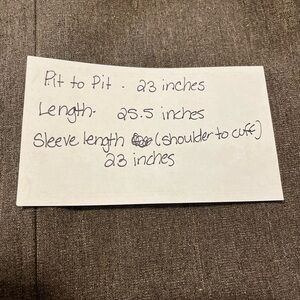 Pit to Pit - 23 inches
Length- 25.5 inches
Sleeve length (shoulder to cuff)
23 inches